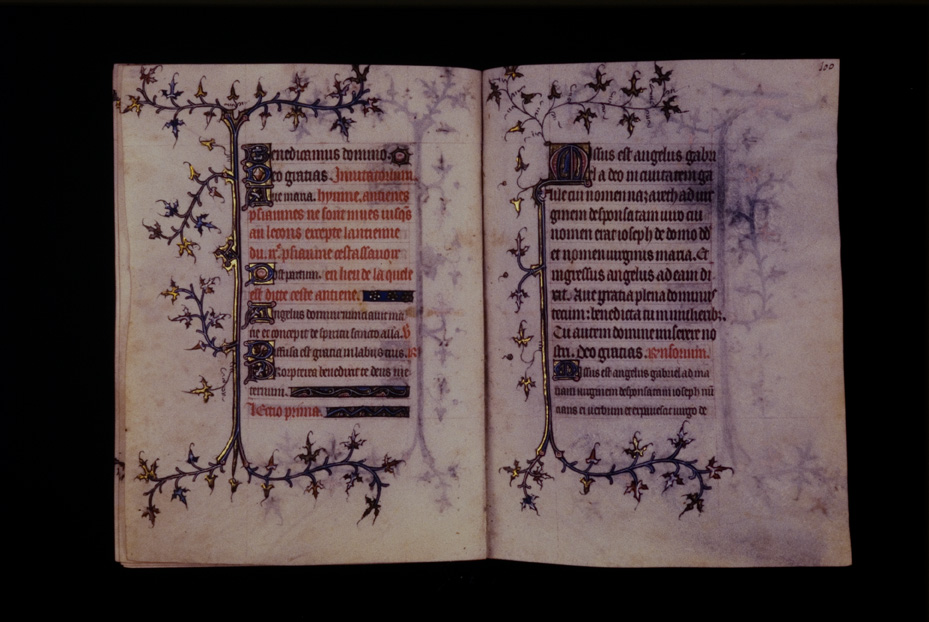 Benedicamus domino.
Deo gratias. Invitatorium.
Aue maria. hymne, antienes
psiaumes ne sont mues iusqs
au lecons excepte lantienne
du psiaume cest assauoir
Post partum. en lieu de la quele
est dicte ceste antiene.
Angelus domini nunciauit ma
rie et concepit de spiritu sancto alla. V
Diffusa est gratia in labiis tuis. R
Propterea benedixit te deus in e
ternum.
Lectio prima.
100
Missus est angelus gabri
el a deo in ciuitatem ga
lilee cui nomen nazareth ad uir
ginem desponsatam uiro cui
nomen erat ioseph de domo dd
et nomen uirginis maria. Et
ingressus angelus ad eam di
xit. Aue gratia plena dominus
tecum: benedicta tu in mulieribus.
Tu autem domine miserere no
stri. Deo gratias. Responsorium.
Missus est angelus gabriel ad ma
riam uirginem desponsatam ioseph nu
ntians ei uerbum et expauescit uirgo de